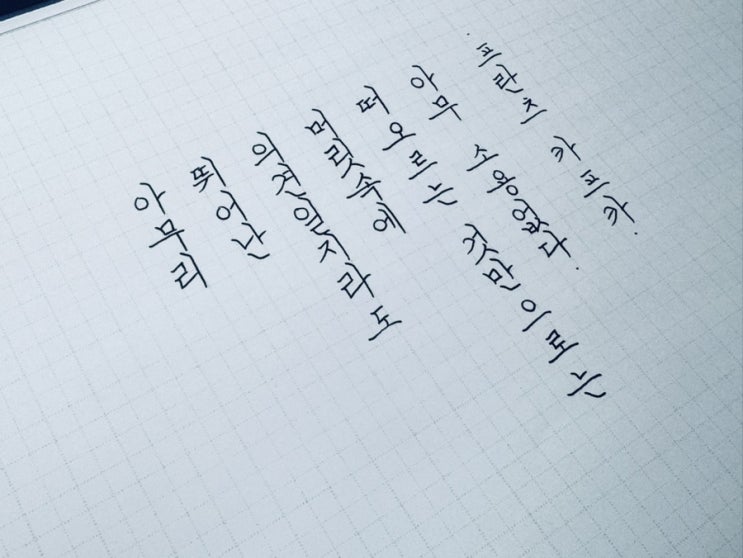 아무리
뛰어난
의견일지라도
머릿속에
떠오르는 것만으로는
아무 소용없다.
·프란츠 카프카·